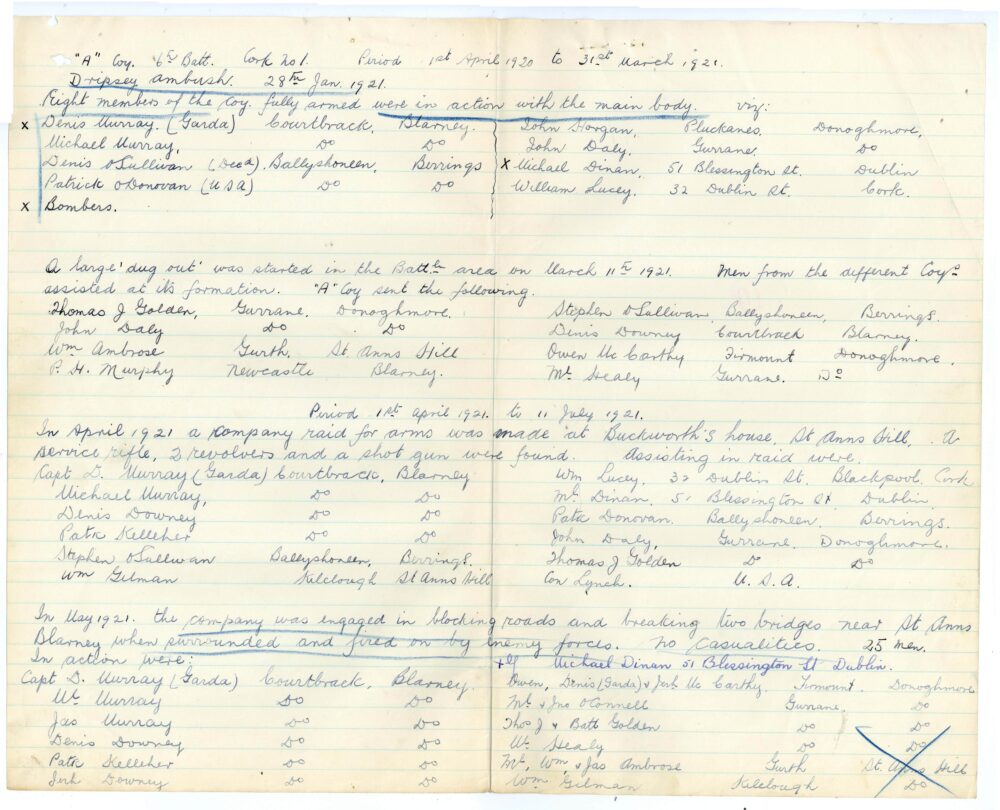 "A" Coy. 6th Batt. Cork No 1. Period 1st April 1920 to 31st March 1921.
Dripsey ambush. 28th Jan 1921.
Eight members of the Coy. fully armed were in action with the main body. viz:
x Denis Murray. (Garda) Courtbrack, Blarney.
Michael Murray, Do Do
Denis O'Sullivan (Decd). Ballyshoneen, Berrings
Patrick O'Donovan (USA) Do Do
x Bombers.
John Horgan, Pluckanes. Donoghmore,
John Daly, Gurrane. Do
x Michael Dinan, 51 Blessington St. Dublin
William Lucey, 32 Dublin St. Cork.
A large 'dug out' was started in the Battln area on March 11th 1921. Men from the different Coys
assisted at its formation. "A" Coy sent the following.
Thomas J Golden, Gurrane. Donoghmore.
John Daly Do Do
Wm Ambrose Gurth. St Anns Hill
P. H. Murphy Newcastle Blarney.
Stephen O'Sullivan Ballyshoneen, Berrings.
Denis Downey Courtbrack Blarney.
Owen Mc Carthy Firmount Donoghmore.
Ml Healy Gurrane. Do
Period 1st April 1921. to 11 July 1921.
In April 1921 a company raid for arms was made at Buckworth's house, St Anns Hill, . A
service rifle, 2 revolvers and a shot gun were found. Assisting in raid were.
Capt D. Murray (Garda) Courtbrack, Blarney
Michael Murray, Do Do
Denis Downey Do Do
Patk Kelleher Do Do
Stephen O'Sullivan Ballyshoneen, Berrings.
Wm Gilman Kilclough St Anns Hill
Wm Lucey, 32 Dublin St. Blackpool, Cork
Ml Dinan, 51 Blessington St Dublin
Patk Donovan. Ballyshoneen. Berrings.
John Daly, Gurrane. Donoghmore.
Thomas J Golden Do Do
Con Lynch. U.S.A.
In May 1921. the company was engaged in blocking roads and breaking two bridges near St Anns
Blarney when surrounded and fired on by enemy forces. No casualities. 25 men.
In action were:
Capt D. Murray (Garda) Courtbrack, Blarney.
Ml Murray Do Do
Jas Murray Do Do
Denis Downey Do Do
Patk Kelleher Do Do
Jerh Downey Do Do
Michael Dinan 51 Blessington St Dublin.
Owen, Denis (Garda) & Jerh Mc Carthy. Firmount. Donoghmore
Ml & Jno O'Connell Gurrane. Do
Thos J & Batt Golden Do Do
Ml Healy Do Do
Ml, Wm & Jas Ambrose Gurth St. Anns Hill
Wm Gilman Kilclough Do